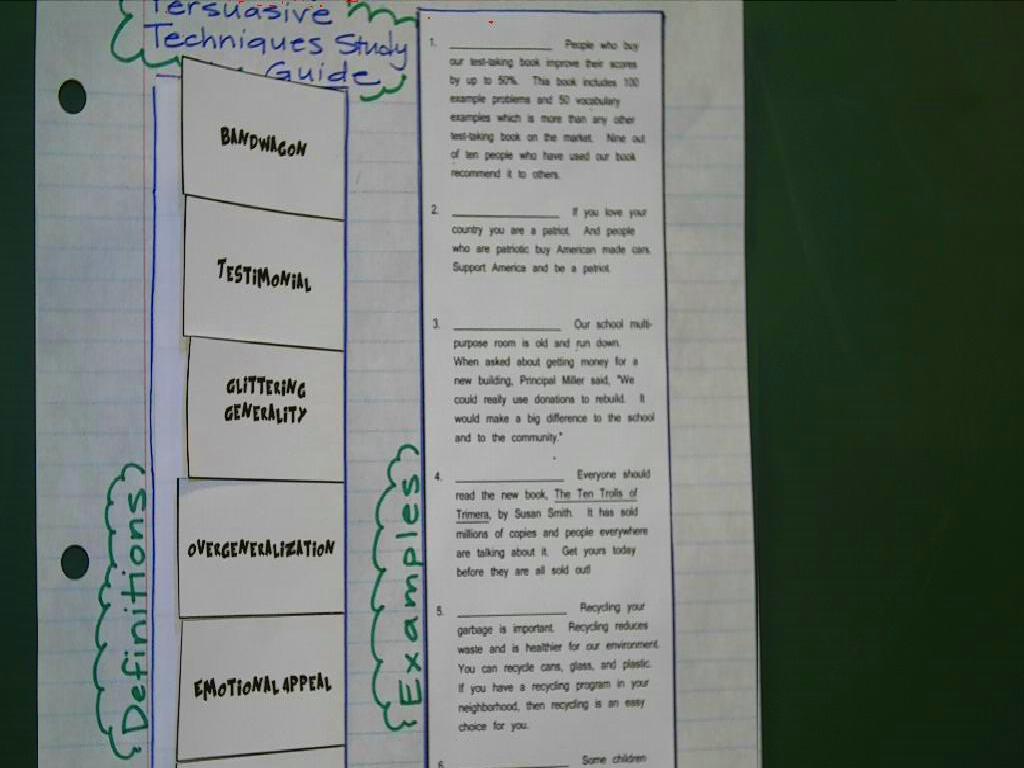 Persuasive
Techniques Study
Guide
BANDWAGON
TESTIMONIAL
GLITTERING
GENERALITY
OVERGENERALIZATION
EMOTIONAL APPEAL
Definitions
Examples
1. ____________ People who buy
our test-taking book improve their scores
by up to 50%. This book includes 100
example problems and 50 vocabulary
examples which is more than any other
test-taking book on the market. Nine out
of ten people who have used our book
recommend it to others.
2. ____________ If you love your
country you are a patriot. And people
who are patriotic buy American made cars.
Support America and be a patriot.
3. ____________ Our school multi-
purpose room is old and run down.
When asked about getting money for a
new building, Principal Miller said, "We
could really use donations to rebuild. It
would make a big difference to the school
and to the community."
4. ____________ Everyone should
read the new book, The Ten Trolls of
Trimera, by Susan Smith. It has sold
millions of copies and people everywhere
are talking about it. Get yours today
before they are all sold out!
5. ____________ Recycling your
garbage is important. Recycling reduces
waste and is healthier for our environment.
You can recycle cans, glass, and plastic.
If you have a recycling program in your
neighborhood, then recycling is an easy
choice for you.
6. ____________ Some children